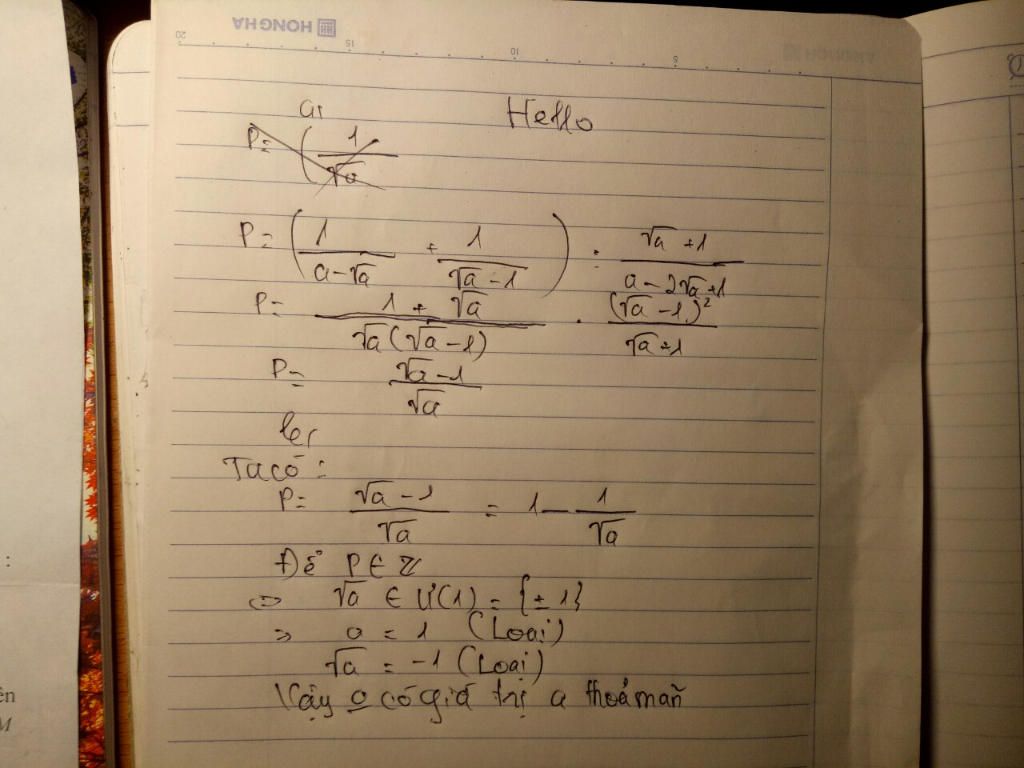 HONG HA
20 15 10 5
a, Hello
P = ( 1/√a
P = ( 1/(a-√a) + 1/(√a - 1) ) : (√a + 1)/(a - 2√a + 1)
P = (1 + √a)/(√a(√a - 1)) . (√a - 1)²/(√a + 1)
P = (√a - 1)/√a
b,
Ta có :
P = (√a - 1)/√a = 1 - 1/√a
Để P ∈ Z
⇔ √a ∈ Ư(1) = {± 1}
⇒ a = 1 (Loại)
√a = -1 (Loại)
Vậy 0 có giá trị a thoả mãn
ên
M